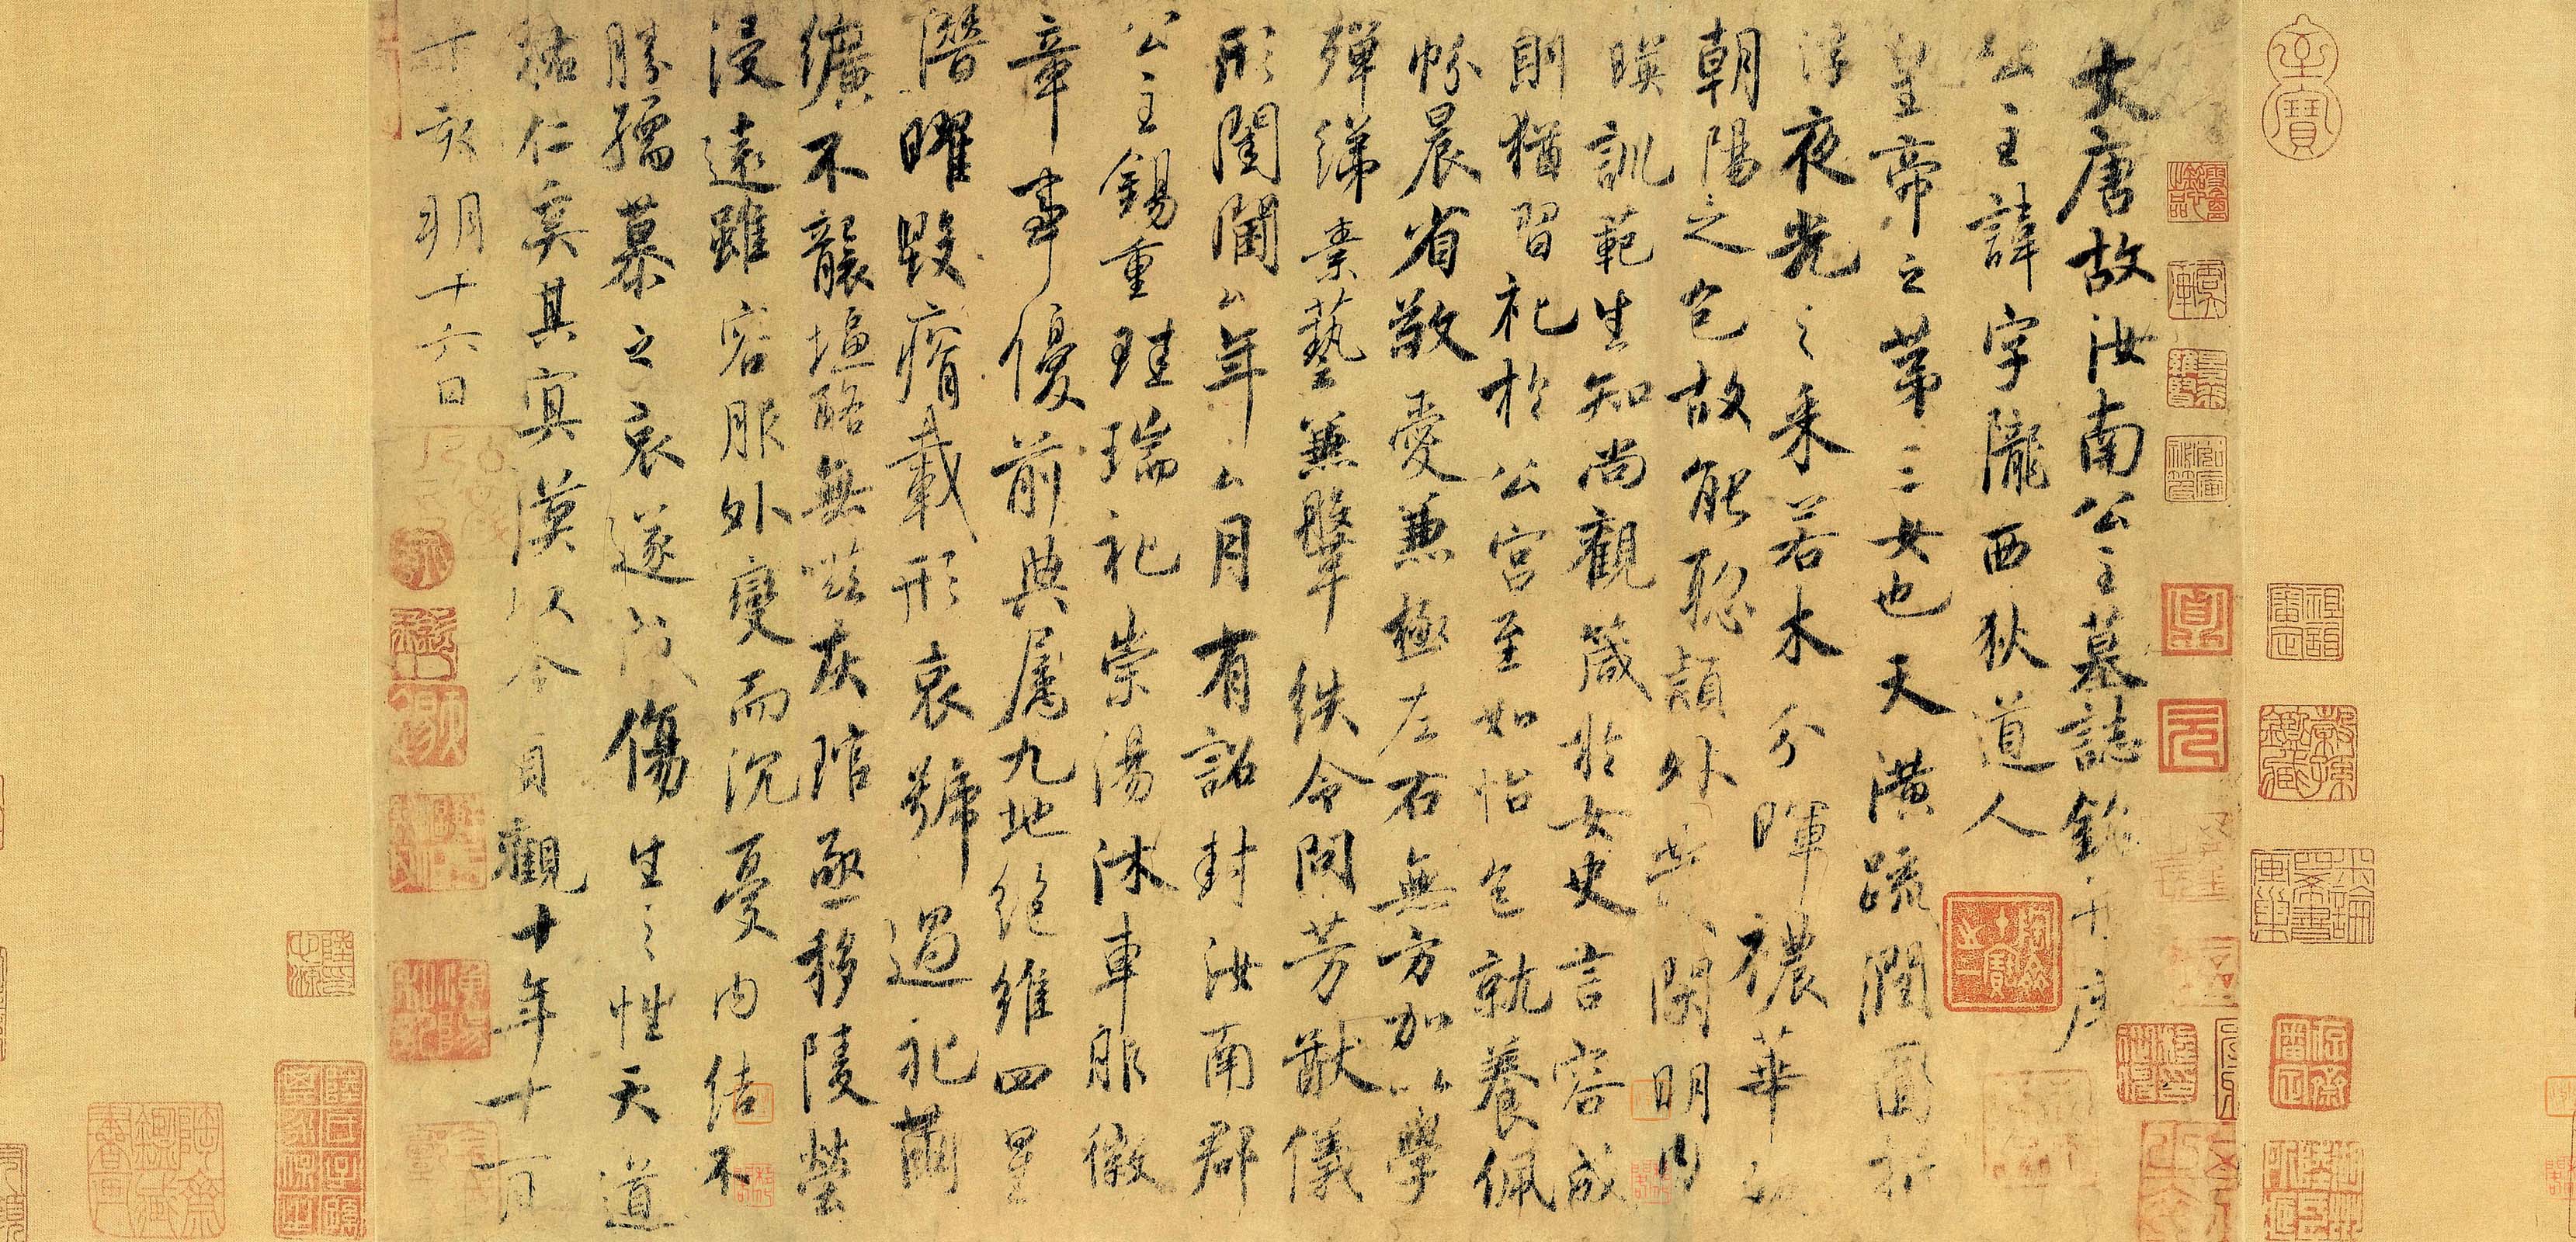 大唐故汝南公主墓誌銘并序
公主諱字隴西狄道人
皇帝之第三女也天潢疏潤圓折
浮夜光之采若木分暉襛華
朝陽之色故能聪頴外閒明内
暎訓範生知尚觀箴於女史言容成
則猶習礼於公宮至如怡色就養佩
帉晨省敬愛兼極左右無方加以學
殫綈素藝兼鞶紩令問芳猷儀
形閨閫厶年厶月有詔封汝南郡
公主錫重珪瑞礼崇湯沐車服徽
章事優前典属九地絕維四星
潛曜毀瘠載形哀號過礼繭
纊不襲塩酪無嗞灰琯亟移陵塋
浸遠雖容服外變而沉憂内结不
勝孺慕之哀遂成傷生之性天道
祐仁奚其冥漠以今貞觀十年十一月
丁亥朔十六日